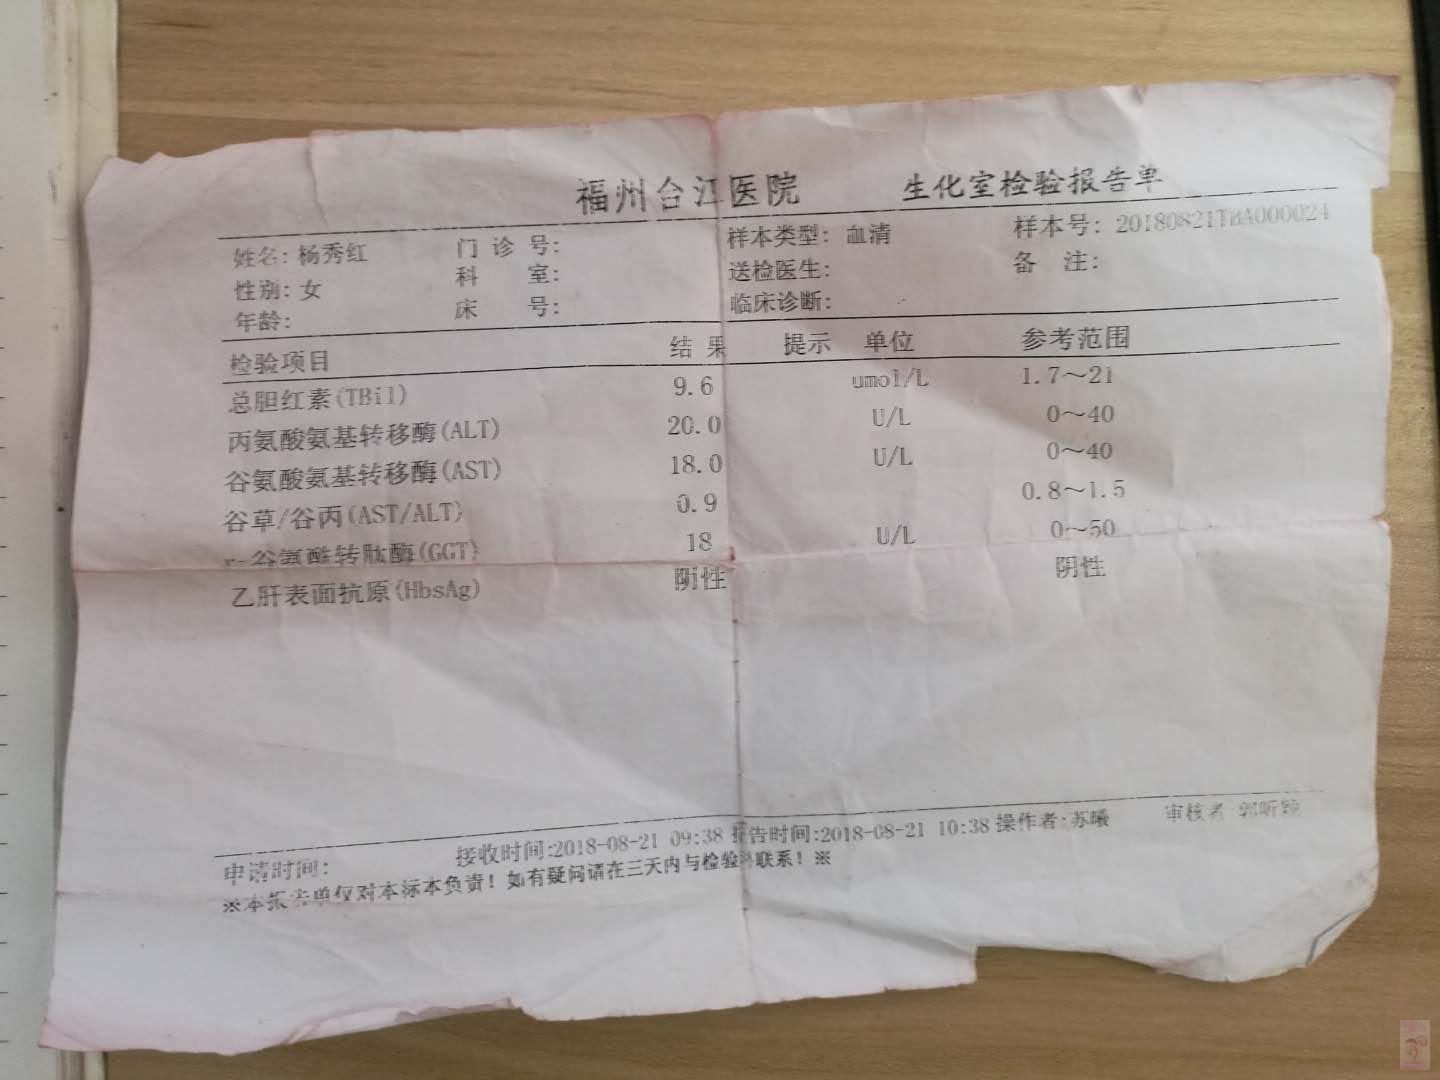 福州台江医院 生化室检验报告单
姓名: 杨秀红 门诊号: 样本类型: 血清 样本号: 20180821TBA000024
性别: 女 科 室: 送检医生: 备 注:
年龄: 床 号: 临床诊断:
检验项目 结果 提示 单位 参考范围
总胆红素(TBil) 9.6 umol/L 1.7~21
丙氨酸氨基转移酶(ALT) 20.0 U/L 0~40
谷氨酸氨基转移酶(AST) 18.0 U/L 0~40
谷草/谷丙(AST/ALT) 0.9 0.8~1.5
r-谷氨酰转肽酶(GGT) 18 U/L 0~50
乙肝表面抗原(HbsAg) 阴性 阴性
申请时间: 接收时间:2018-08-21 09:38 报告时间:2018-08-21 10:38 操作者:苏曦 审核者
※本报告单仅对本标本负责! 如有疑问请在三天内与检验科联系! ※